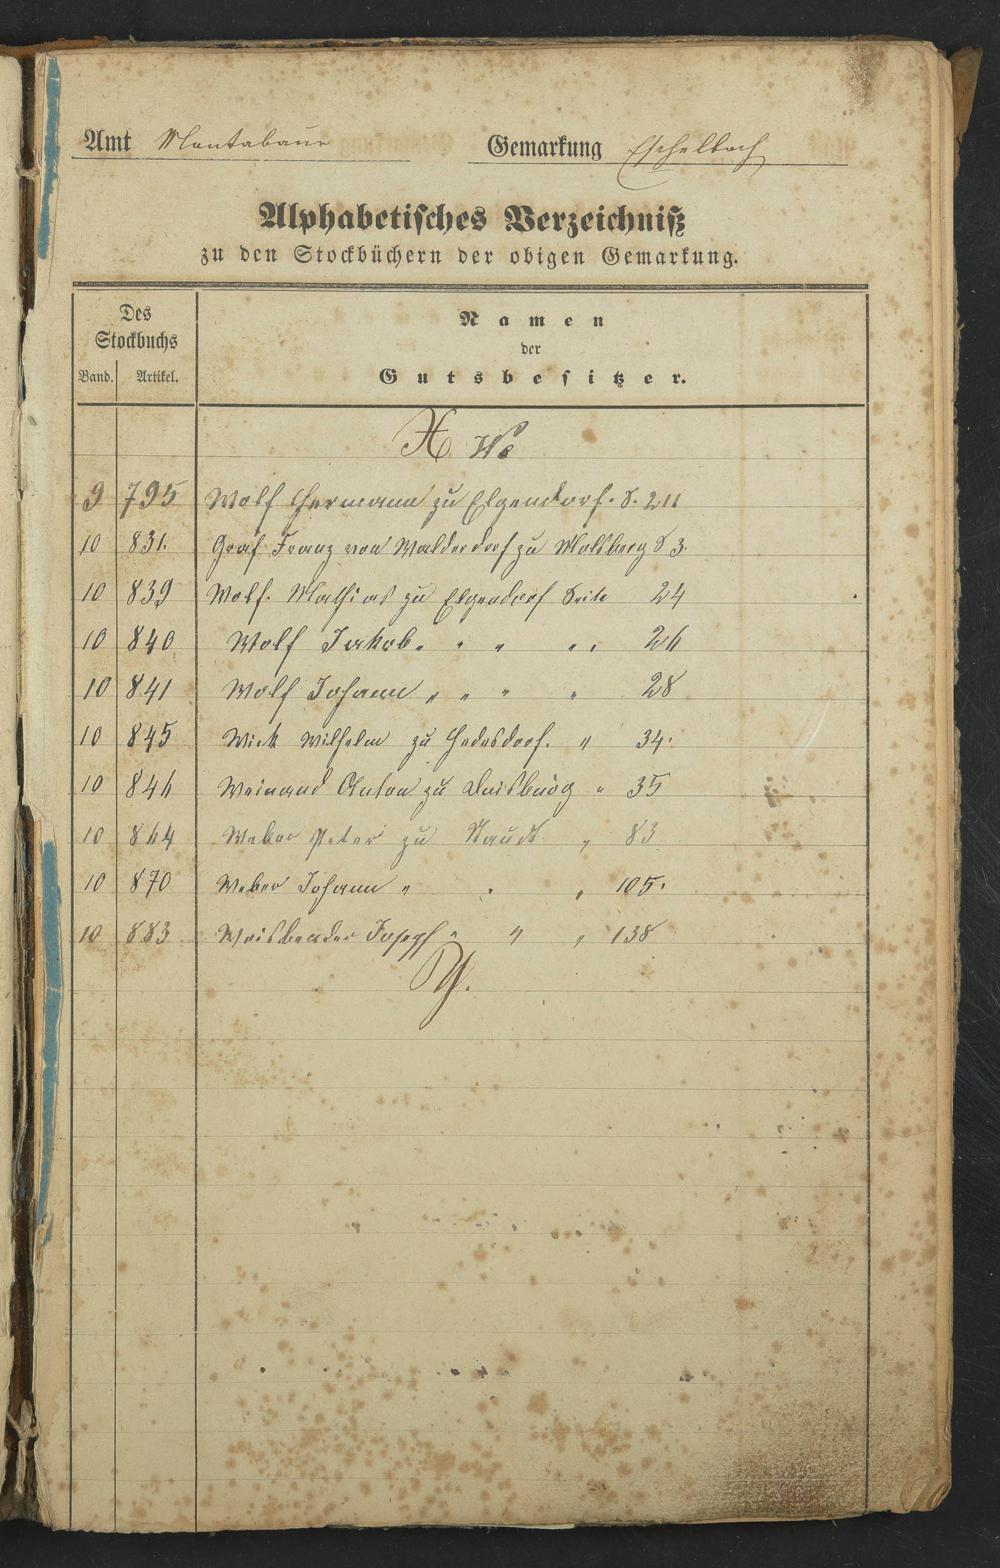 Amt Montabaur Gemarkung Eschelbach
Alphabetisches Verzeichniß
zu den Stockbüchern der obigen Gemarkung.
Des Stockbuchs
Namen
der
Gutsbesitzer.
Band. Artikel.
X W
9 795 Wolf Hermann zu Elgendorf. S. 211
10 831. Graf Franz von Walderdorf zu Molsberg S 3.
10 839 Wolf. Mathias zu Elgendorf Seite 24
10 840 Wolf Jakob " " " 26
10 841 Wolf Johann " " " " 28
10 845 Wick Wilhelm zu Hedesdorf. " 34.
10 846 Weinand Anton zu Duisburg " 35
10 864 Weber Peter zu Staudt " 83
10 870 Weber Johann " " " 105.
10 883 Weisbender Joseph " " " 138
Y.